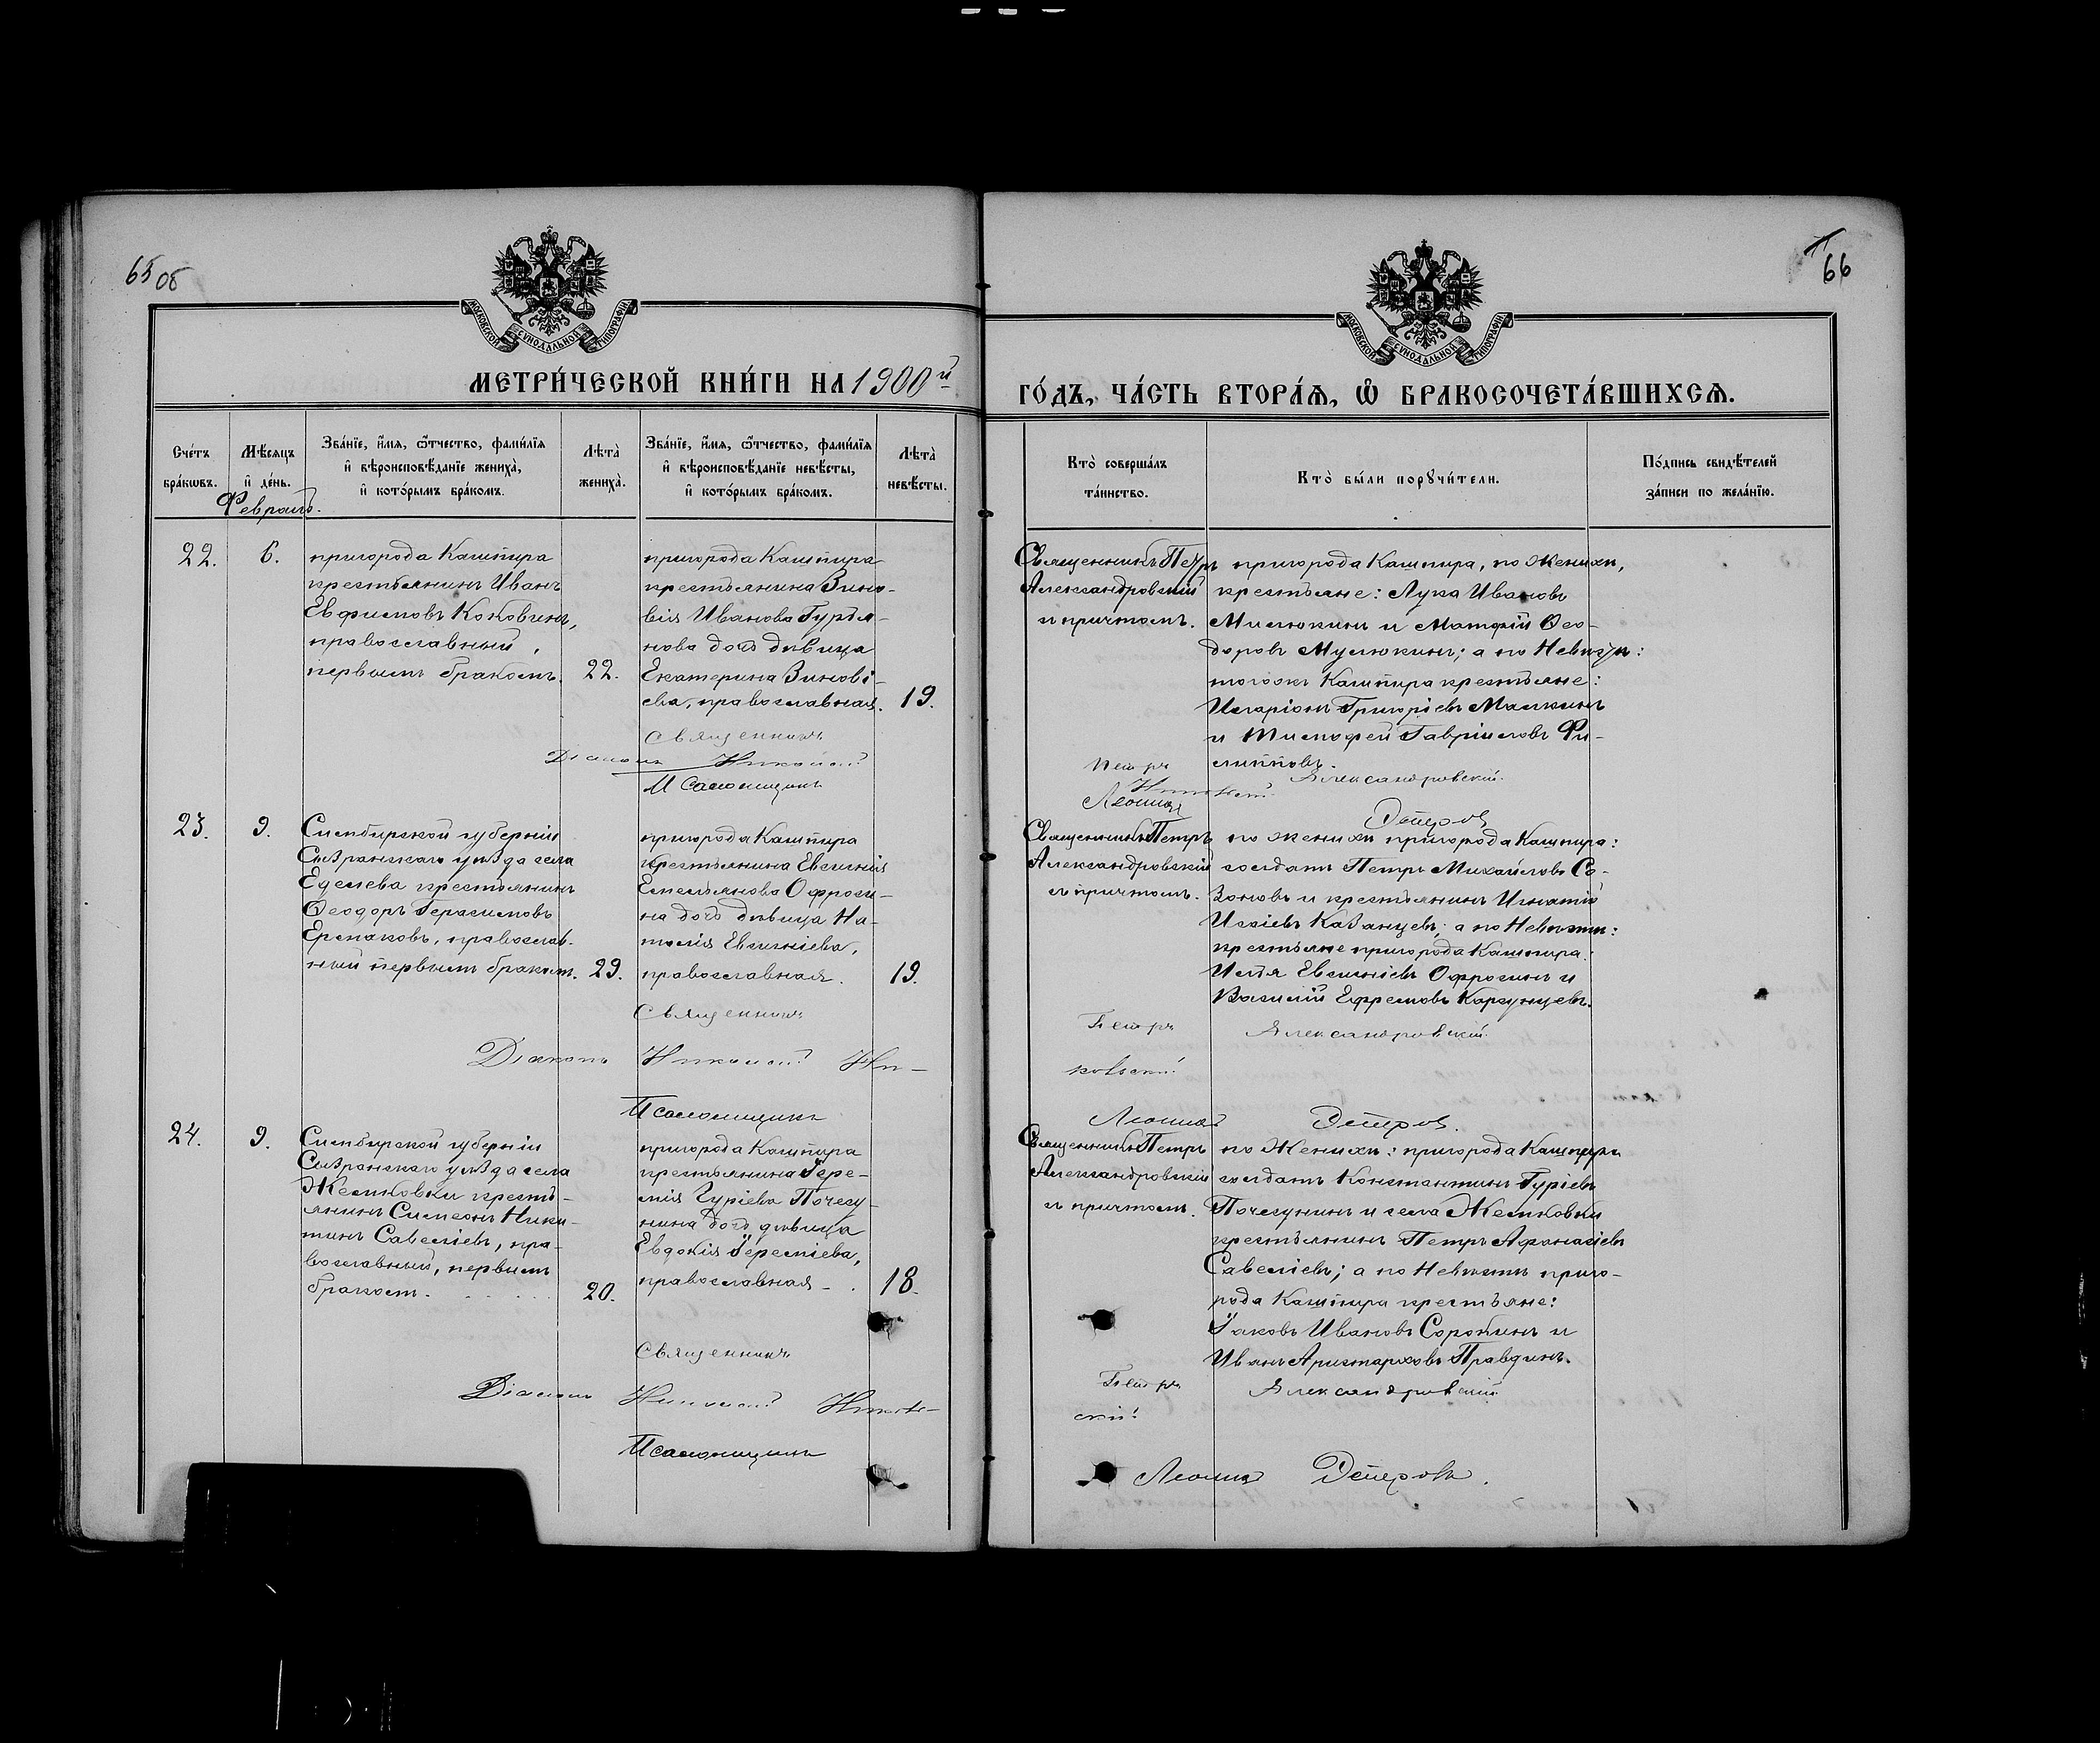 65 об
66
МОСКОВСКОЙ СѴНОДАЛЬНОЙ ТИПОГРАФІИ
МОСКОВСКОЙ СѴНОДАЛЬНОЙ ТИПОГРАФІИ
МЕТРИ́ЧЕСКОЙ КНИ́ГИ НА 1900й
ГО́ДЪ, ЧА́СТЬ ВТОРА́Я, Ѽ БРАКОСОЧЕТА́ВШИХСЯ.
Сче́тъ
бра́кѡвъ.
Мѣ́сяцъ
и҆ де́нь.
Зва́нїе, и҆́мя, ѻ҆́тчество, фами́лїя
и҆ вѣроисповѣ́данїе жениха̀,
и҆ кото́рымъ бра́комъ.
Лѣ́та̀
жениха̀.
Зва́нїе, и҆́мя, ѻ҆́тчество, фами́лїя
и҆ вѣроисповѣ́данїе невѣ́сты,
и҆ кото́рымъ бра́комъ.
Лѣ́та̀
невѣ́сты.
Кто̀ соверша́лъ
та́инство.
Кто̀ бы́ли порꙋчи́тели.
По́дпись свидѣ́телей
за́писи по жела́нїю.
Февраль.
22.
6.
пригорода Кашпира
крестьянинъ Иванъ
Евфимовъ Коковинъ,
православный,
первымъ бракомъ.
22.
пригорода Кашпира
крестьянина Зино-
вія Иванова Гурья-
нова дочь дѣвица
Екатерина Зиновь-
ева, православная.
19.
Священникъ Петръ
Александровскій
и причтомъ.
пригорода Кашпира, по Женихѣ,
крестьяне: Лука Ивановъ
Милюкинъ и Матфій Ѳео-
доровъ Мулюкинъ; а по Невѣстѣ:
тогоже Кашпира крестьяне:
Иларіонъ Григоріевъ Малкинъ
и Тимофей Гавріиловъ Фи-
липповъ.
Священникъ
Петръ
Александровскій
Діаконъ Николай
Псаломщикъ
Леонидъ
23.
9.
Симбирской губерніи
Сызранскаго уѣзда села
Еделева крестьянинъ
Ѳеодоръ Герасимовъ
Ермаковъ, православ-
ный первымъ бракомъ.
29.
пригорода Кашпира
крестьянина Евгенія
Емельянова Офроси-
на дочь дѣвица На-
талія Евгеніева,
православная.
19.
Священникъ Петръ
Александровскій
съ причтомъ.
по женихѣ пригорода Кашпира:
солдатъ Петръ Михайловъ Са-
зоновъ и крестьянинъ Игнатій
Исаіевъ Казанцевъ; а по Невѣстѣ:
крестьяне пригорода Кашпира:
Илья Евгеніевъ Офросинъ и
Василій Ефремовъ Карзунцевъ.
Священникъ
Петръ
Александровскій
Діаконъ Николай Ни-
ковскій
Псаломщикъ
Леонидъ
24.
9.
Симбирской губерніи
Сызранскаго уѣзда села
Жемковки кресть-
янинъ Симеонъ Ники-
тинъ Савеліевъ, пра-
вославный, первымъ
бракомъ.
20.
пригорода Кашпира
крестьянина Іере-
мія Гуріева Почезу-
нина дочь дѣвица
Евдокія Іереміева,
православная
18.
Священникъ Петръ
Александровскій
съ причтомъ.
по Женихѣ: пригорода Кашпира
солдатъ Константинъ Гуріевъ
Почезунинъ и села Жемковки
крестьянинъ Петръ Афанасіевъ
Савеліевъ; а по Невѣстѣ приго-
рода Кашпира крестьяне:
Іаковъ Ивановъ Сорокинъ и
Иванъ Аристарховъ Правдинъ.
Священникъ
Петръ
Александровскій
Діаконъ Николай Ников-
скій
Псаломщикъ
Леонидъ